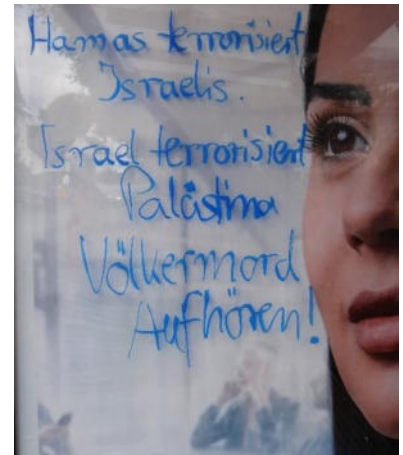 Hamas terrorisiert
Israelis.
Israel terrorisiert
Palästina
Völkermord
Aufhören!